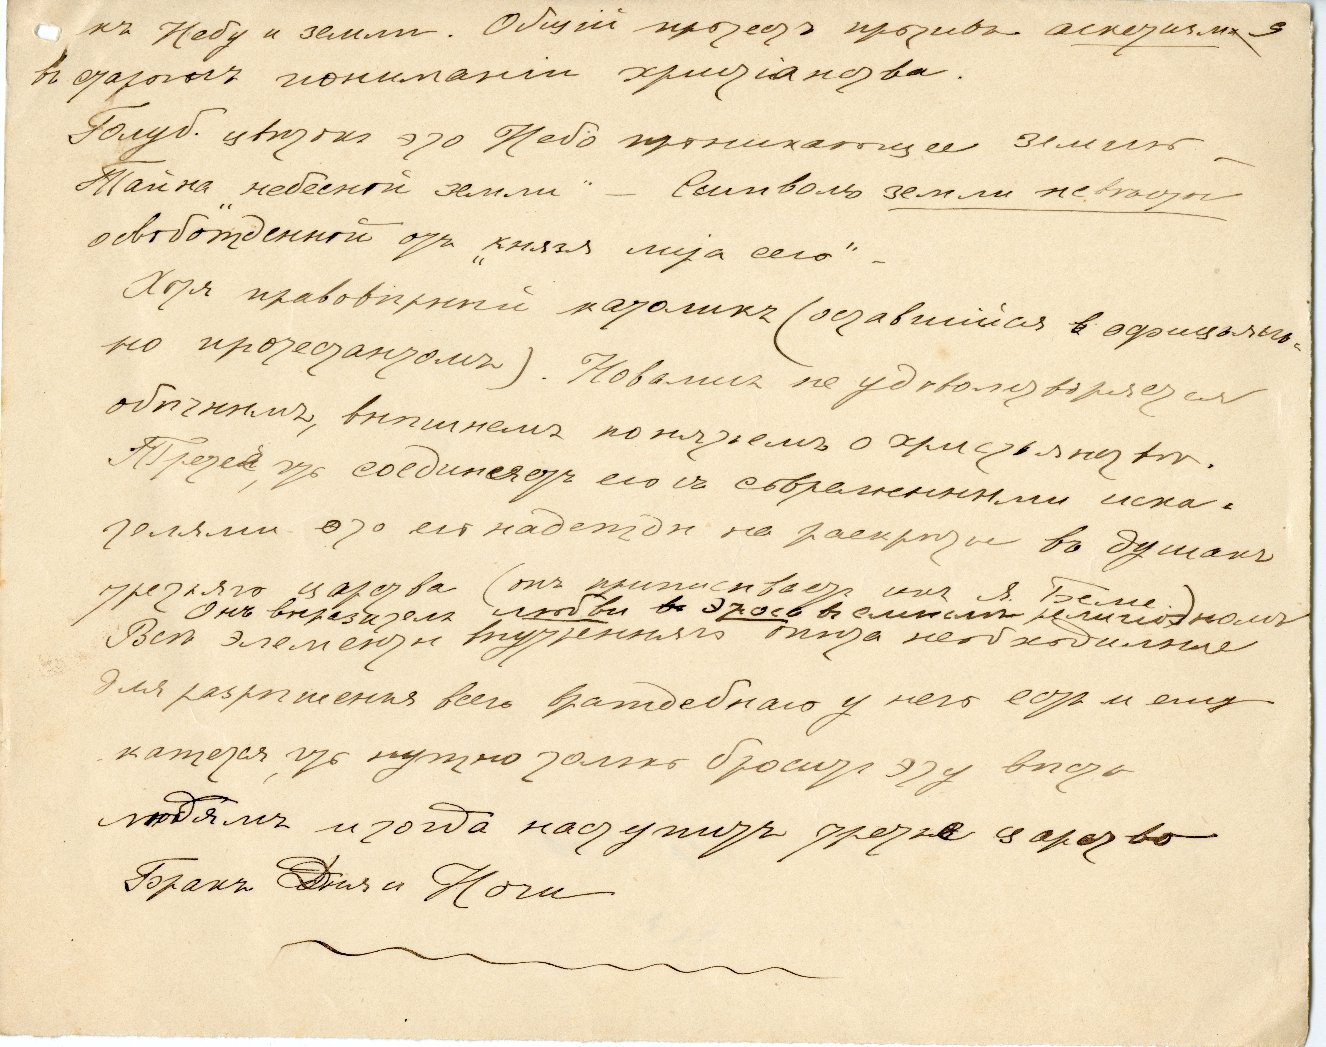 къ Небу и земли. Общій протестъ противъ аскетизма
въ старомъ пониманіи христіанства.
Голуб. цвѣтокъ это Небо проникающее землю —
Тайна „небесной земли" — Символъ земли невѣсты
освобожденной отъ „князя міра сего" –
Хотя правовѣрный католикъ (оставшійся в официаль-
но протестантомъ). Новалис не удовлетворяется
обычнымъ, внѣшнемъ понятьемъ о христьянствѣ.
Третей, что соединяетъ его съ современными иска-
телями это его надежды на раскрытье въ душахъ
третьяго царства (онъ приписываетъ ихъ Я. Беме.)
Онъ выразитель любви въ эросѣ в религіозномъ
Всѣ элементы внутренняго опыта необходимые
для разрѣшенья всего враждебнаго у него есть и ему
кажется, что нужно только бросить эту вѣсть
людямъ и тогда наступитъ третье царство
Бракъ Дня и Ночи